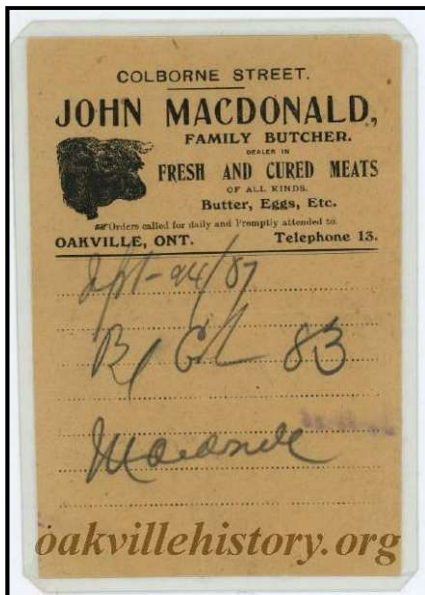 COLBORNE STREET.
JOHN MACDONALD,
FAMILY BUTCHER.
DEALER IN
FRESH AND CURED MEATS
OF ALL KINDS.
Butter, Eggs, Etc.
Orders called for daily and Promptly attended to.
OAKVILLE, ONT. Telephone 13.
By 83
oakvillehistory.org